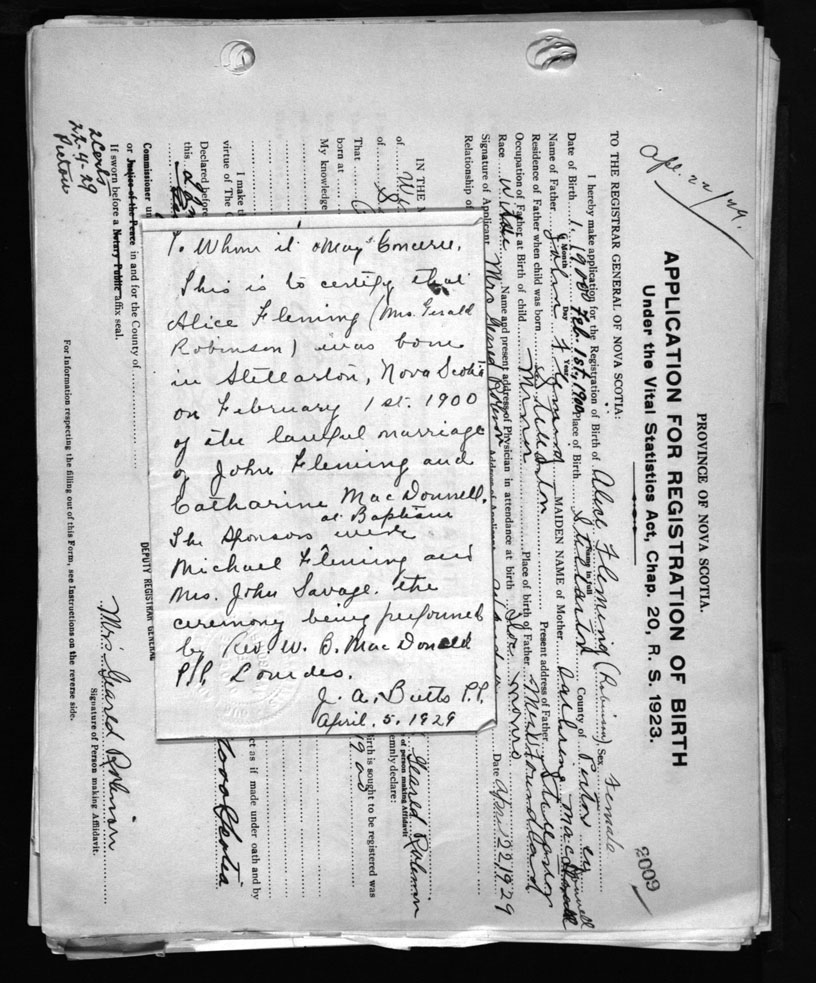 PROVINCE OF NOVA SCOTIA.
APPLICATION FOR REGISTRATION OF BIRTH
Under the Vital Statistics Act, Chap. 20, R. S. 1923.
2009
TO THE REGISTRAR GENERAL OF NOVA SCOTIA:
I hereby make application for the Registration of Birth of Alice Fleming (Robinson) Sex Female
Name in full
Date of Birth 1, 1900 Feb. 1st, 1900 Place of Birth Stellarton County of
Month Day Year
Name of Father John MAIDEN NAME of Mother
Residence of Father when child was born Stellarton Present address of Father
Occupation of Father at Birth of child Miner Place of birth of Father
Race White Name and present address of Physician in attendance at birth
Signature of Applicant Mrs Geared Robinson Date April 22 1929
Relationship of
IN THE
of
of
That
born at
My knowledge
Geared Robinson
of person making Affidavit.
emnly declare:
irth is sought to be registered was
19
I make
virtue of The
ct as if made under oath and by
Declared before
this
Nova Scotia
Commissioner
or Justice of the Peace in and for the County of
DEPUTY REGISTRAR GENERAL
If sworn before a Notary Public affix seal.
Mrs. Geared Robinson
Signature of Person making Affidavit.
For Information respecting the filling out of this Form, see Instructions on the reverse side.
2 Certs
22-4-29
Pictou
To Whom it May Concern.
This is to certify that
Alice Fleming (Mrs. Gerald
Robinson) was born
in Stellarton, Nova Scotia
on February 1st. 1900
of the lawful marriage
of John Fleming and
Catharine MacDonnell.
at Baptism
The Sponsors were
Michael Fleming and
Mrs. John Savage. the
ceremony being performed
by Rev. W. B. MacDonald
P.P. Lourdes.
J. A. Butts P.P.
April. 5. 1929